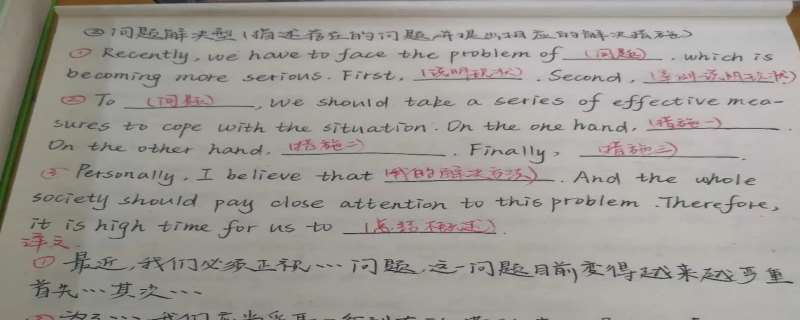 ③问题解决型(描述存在的问题,并提出相应的解决措施)
① Recently, we have to face the problem of (问题), which is
becoming more serious. First, (说明现状). Second, (举例说明现状)
② To (问题), we should take a series of effective mea-
sures to cope with the situation. On the one hand, (措施一).
On the other hand, (措施二). Finally, (措施三).
③ Personally, I believe that (我的解决方法). And the whole
society should pay close attention to this problem. Therefore,
it is high time for us to (总结概述).
译文
① 最近,我们必须正视…问题,这一问题目前变得越来越严重
首先…其次…